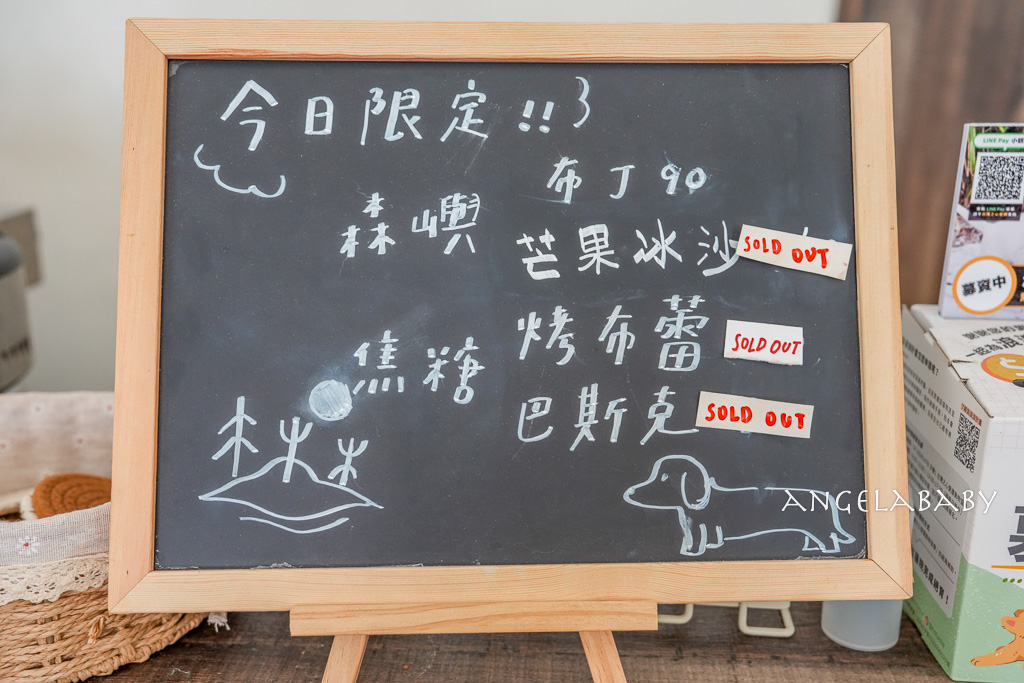 今日限定!!
布丁 90
森嶼
芒果冰沙 SOLD OUT
烤布蕾 SOLD OUT
焦糖
巴斯克 SOLD OUT
ANGELABABY
LINE Pay
募資中